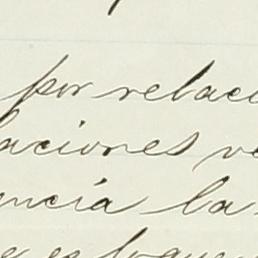 por relaci
laciones ve
encia la